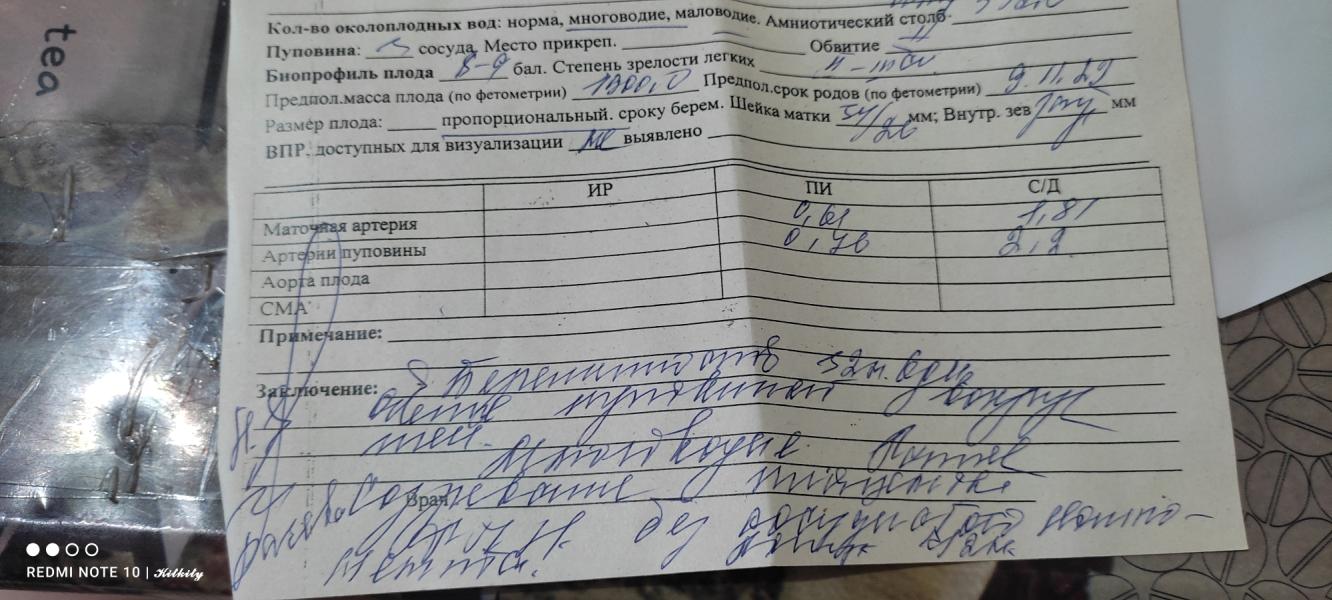 tea
Кол-во околоплодных вод: норма, многоводие, маловодие. Амниотический столб
Пуповина: 3 сосуда. Место прикреп. Обвитие
Биопрофиль плода 8-9 бал. Степень зрелости легких II-III
Предпол.масса плода (по фетометрии) 1900,0 Предпол.срок родов (по фетометрии) 9.11.22
Размер плода: пропорциональный. сроку берем. Шейка матки 34/26 мм; Внутр. зев мм
ВПР. доступных для визуализации не выявлено
ИР ПИ С/Д
Маточная артерия 0,61 1,81
Артерии пуповины 0,76 2,2
Аорта плода
СМА
Примечание:
Заключение: Беременность 32н.
обвитие пуповиной вокруг
шеи. Многоводие. Раннее
Врач созревание плаценты.
без сосудистого компо-
нента.
REDMI NOTE 10 | Kitkity